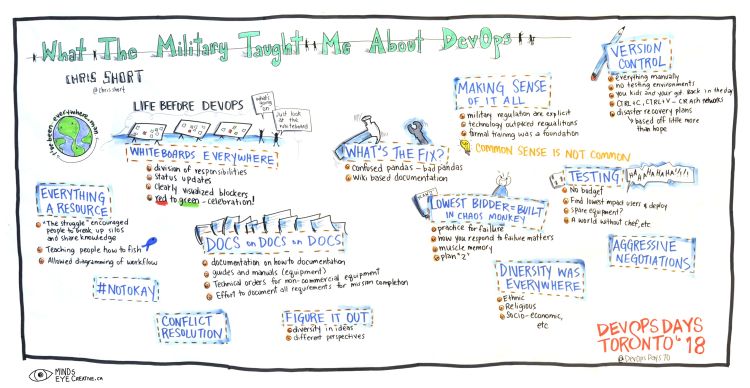 What The Military Taught Me About DevOps
CHRIS SHORT
@chrisshort
i've been everywhere, man
LIFE BEFORE DEVOPS
what's going on
Just look at the whiteboard
WHITEBOARDS EVERYWHERE
division of responsibilities
status updates
Clearly visualized blockers
red to green - celebration!
EVERYTHING
A RESOURCE!
"The struggle" encouraged
people to break up silos
and share knowledge
Teaching people how to fish
Allowed diagramming of workflow
#NOTOKAY
DOCS ON DOCS ON DOCS
documentation on how to documentation
guides and manuals (equipment)
Technical orders for non-commercial equipment
Effort to document all requirements for mission completion
CONFLICT
RESOLUTION
FIGURE IT OUT
diversity in ideas
different perspectives
WHAT'S THE FIX?
confused pandas - bad pandas
Wiki based documentation
MAKING SENSE
OF IT ALL
military regulation are explicit
technology outpaced regualitions
formal training was a foundation
COMMON SENSE IS NOT COMMON
LOWEST BIDDER = BUILT
IN CHAOS MONKEY
practice for failure
how you respond to failure matters
muscle memory
plan "Z"
DIVERSITY WAS
EVERYWHERE
Ethnic
Religious
Socio-economic,
etc
VERSION
CONTROL
everything manually
no testing environments
you kids and your git. Back in the day
CTRL+C, CTRL+V - CRASH networks
disaster recovery plans
based off little more
than hope
TESTING
HAHAHAHAHA!!!
No budget
Find lowest impact users & deploy
spare equipment?
A world without chef, etc
AGGRESSIVE
NEGOTIATIONS
DEVOPSDAYS
TORONTO '18
@DevOpsDaysTO
MINDS
EYE CREATIVE.CA